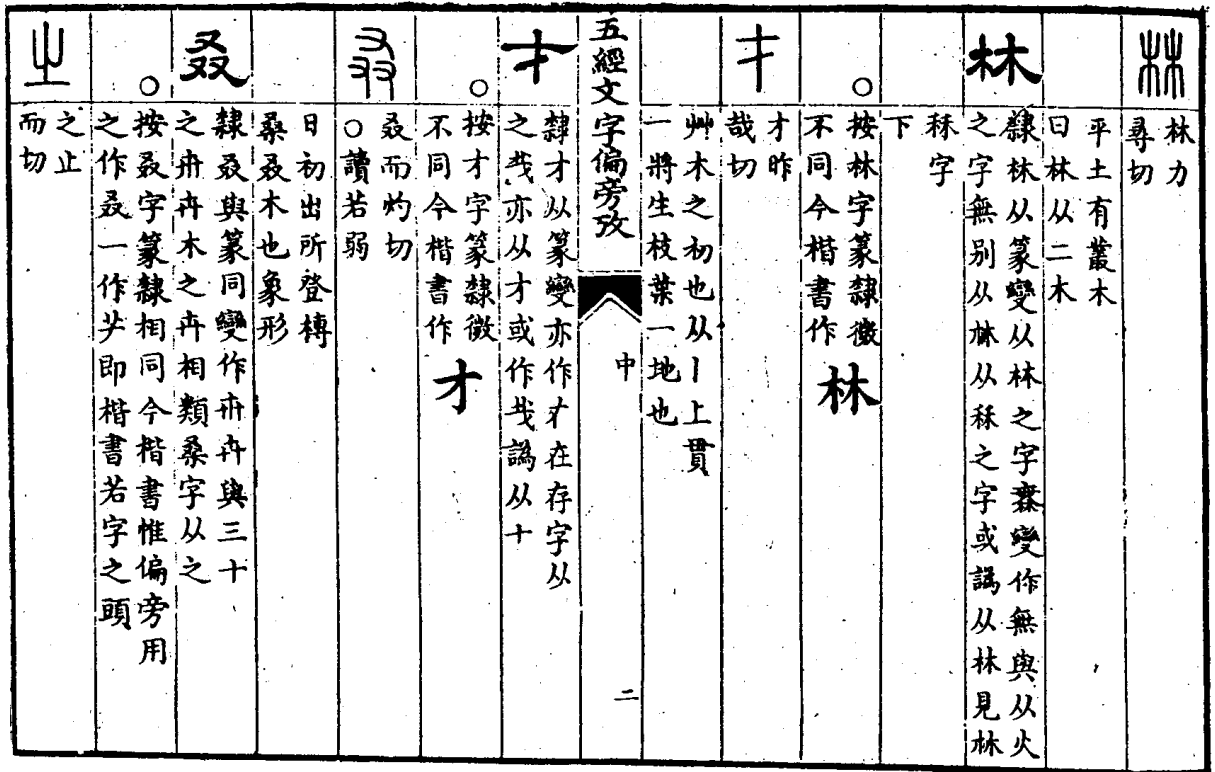 林
林力
尋切
平土有叢木
曰林从二木
林
隸林从篆變从林之字𣞤變作無與从火
之字無別从𣏟从秝之字或譌从林見𣏟
秝字
下
○
按林字篆隸微
不同今楷書作
林
才
才昨
哉切
艸木之初也从丨上貫
一將生枝葉一地也
五經文字偏旁攷
中
二
才
隸才从篆變亦作才在存字从
之𢦏亦从才或作𢦏譌从十
○
按才字篆隸微
不同今楷書作
才
叒
叒而灼切
○讀若弱
日初出所登榑
桑叒木也象形
叒
隸叒與篆同變作卉卉與三十
之卉卉木之卉相類桑字从之
○
按叒字篆隸相同今楷書惟偏旁用
之作叒一作艹即楷書若字之頭
之
之止
而切